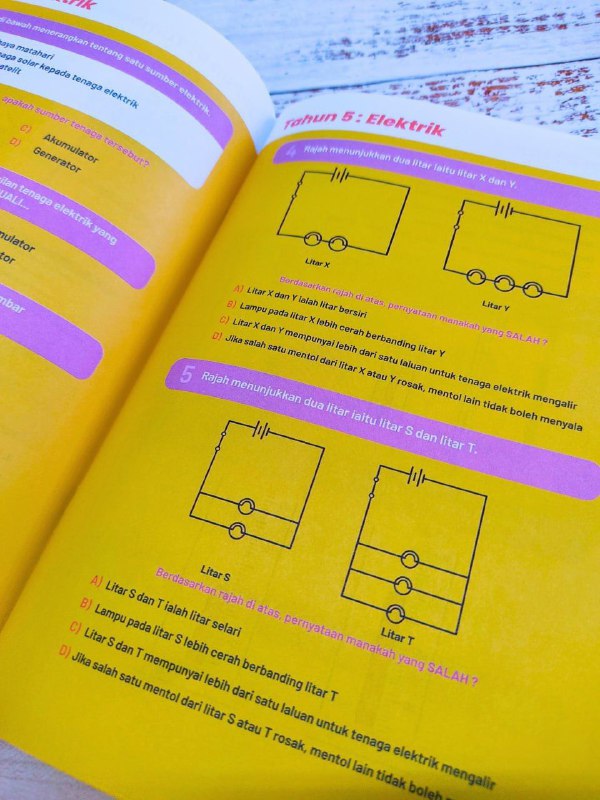 di bawah menerangkan tentang satu sumber elektrik
haya matahari
tenaga solar kepada tenaga elektrik
apakah sumber tenaga tersebut?
C) Akumulator
D) Generator
tenaga elektrik yang
Tahun 5 : Elektrik
4 Rajah menunjukkan dua litar iaitu litar X dan Y.
Litar X
Litar Y
Berdasarkan rajah di atas, pernyataan manakah yang SALAH ?
A) Litar X dan Y ialah litar bersiri
B) Lampu pada litar X lebih cerah berbanding litar Y
C) Litar X dan Y mempunyai lebih dari satu laluan untuk tenaga elektrik mengalir
D) Jika salah satu mentol dari litar X atau Y rosak, mentol lain tidak boleh menyala
5 Rajah menunjukkan dua litar iaitu litar S dan litar T.
Litar S
Litar T
Berdasarkan rajah di atas, pernyataan manakah yang SALAH ?
A) Litar S dan T ialah litar selari
B) Lampu pada litar S lebih cerah berbanding litar T
C) Litar S dan T mempunyai lebih dari satu laluan untuk tenaga elektrik mengalir
D) Jika salah satu mentol dari litar S atau T rosak, mentol lain tidak boleh